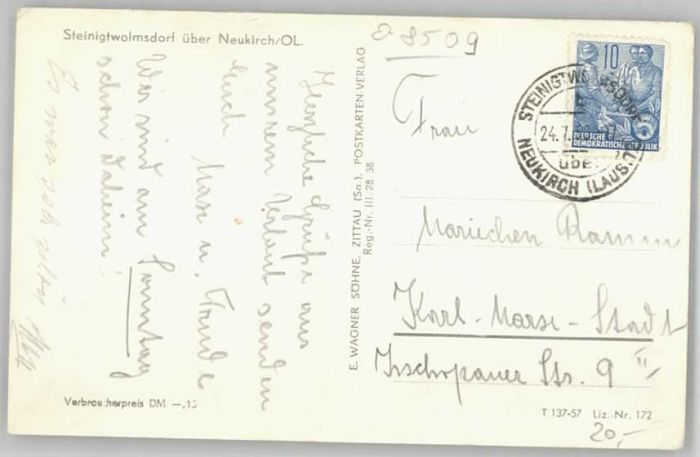 Steinigtwolmsdorf über Neukirch/OL.
D-8509
Herzliche Grüße aus
unserem Urlaub senden
Euch Maxe u. Trude
Wir sind am Sonntag
schon daheim!
Es war sehr schön
E. WAGNER SÖHNE, ZITTAU (Sa.), POSTKARTEN-VERLAG
Reg.-Nr. III/28 38
10
DEUTSCHE
DEMOKRATISCHE REPUBLIK
STEINIGTWOLMSDORF
24.7.
über
NEUKIRCH (LAUS.)
Frau
Mariechen Ramm
Karl-Marx-Stadt
Zschopauer Str. 9 II
Verbraucherpreis DM —,15
T 137-57 Liz.-Nr. 172
20,-